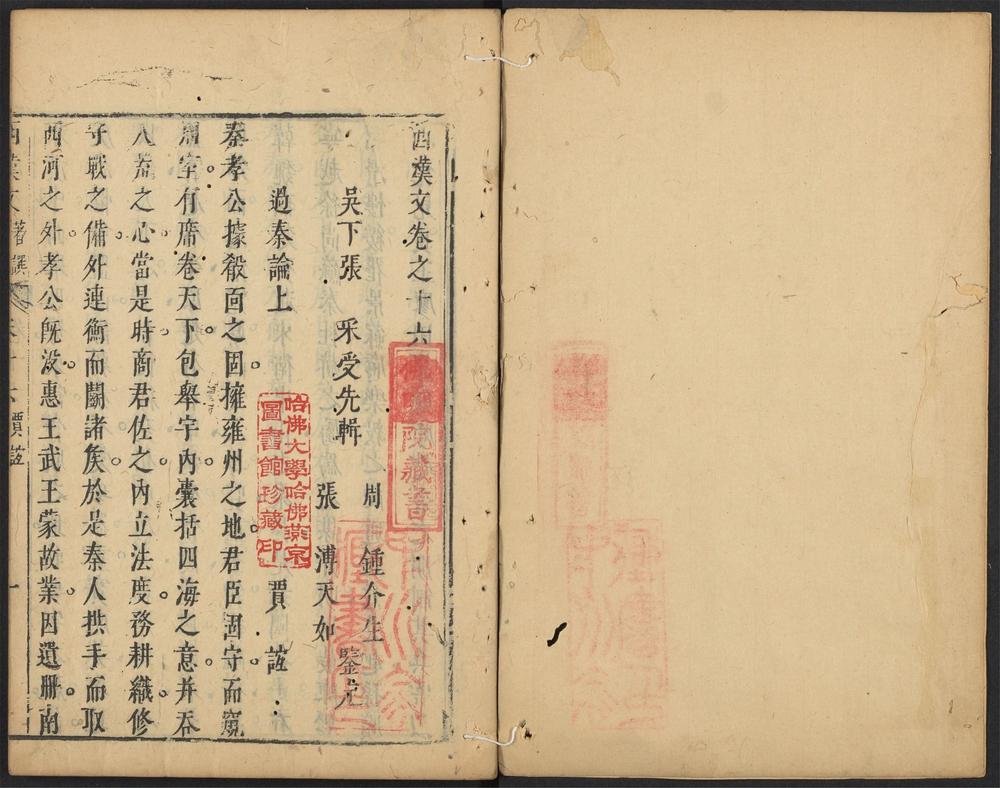 西漢文卷之十六
吳下張 采受先輯
周 鍾介生
張 溥天如
鑒定
過秦論上 賈誼
秦孝公據殽函之固擁雍州之地君臣固守而窺
周室有席卷天下包舉宇內囊括四海之意并吞
八荒之心當是時商君佐之內立法度務耕織修
守戰之備外連衡而鬬諸矦於是秦人拱手而取
西河之外孝公旣沒惠王武王蒙故業因遺冊南
西漢文 卷十六賈誼 一
哈佛大學哈佛燕京
圖書館珍藏印
院藏書